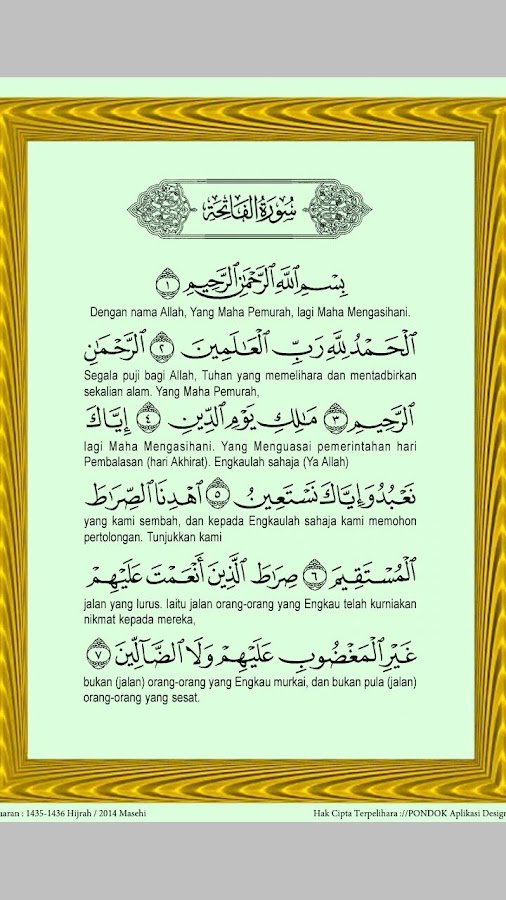 سُورَةُ الفَاتِحَة
بِسْمِ ٱللَّهِ ٱلرَّحْمَٰنِ ٱلرَّحِيمِ ١
Dengan nama Allah, Yang Maha Pemurah, lagi Maha Mengasihani.
ٱلْحَمْدُ لِلَّهِ رَبِّ ٱلْعَٰلَمِينَ ٢ ٱلرَّحْمَٰنِ
Segala puji bagi Allah, Tuhan yang memelihara dan mentadbirkan
sekalian alam. Yang Maha Pemurah,
ٱلرَّحِيمِ ٣ مَٰلِكِ يَوْمِ ٱلدِّينِ ٤ إِيَّاكَ
lagi Maha Mengasihani. Yang Menguasai pemerintahan hari
Pembalasan (hari Akhirat). Engkaulah sahaja (Ya Allah)
نَعْبُدُ وَإِيَّاكَ نَسْتَعِينُ ٥ ٱهْدِنَا ٱلصِّرَٰطَ
yang kami sembah, dan kepada Engkaulah sahaja kami memohon
pertolongan. Tunjukkan kami
ٱلْمُسْتَقِيمَ ٦ صِرَٰطَ ٱلَّذِينَ أَنْعَمْتَ عَلَيْهِمْ
jalan yang lurus. Iaitu jalan orang-orang yang Engkau telah kurniakan
nikmat kepada mereka,
غَيْرِ ٱلْمَغْضُوبِ عَلَيْهِمْ وَلَا ٱلضَّآلِّينَ ٧
bukan (jalan) orang-orang yang Engkau murkai, dan bukan pula (jalan)
orang-orang yang sesat.
: 1435-1436 Hijrah / 2014 Masehi
Hak Cipta Terpelihara ://PONDOK Aplikasi Design